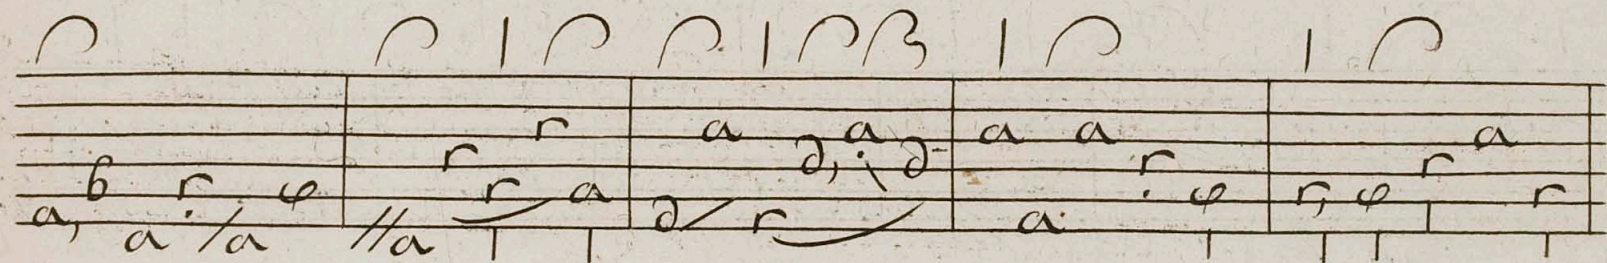 a, b a r /a e //a r r r a d a r d, a d a a a r e r, e r a r